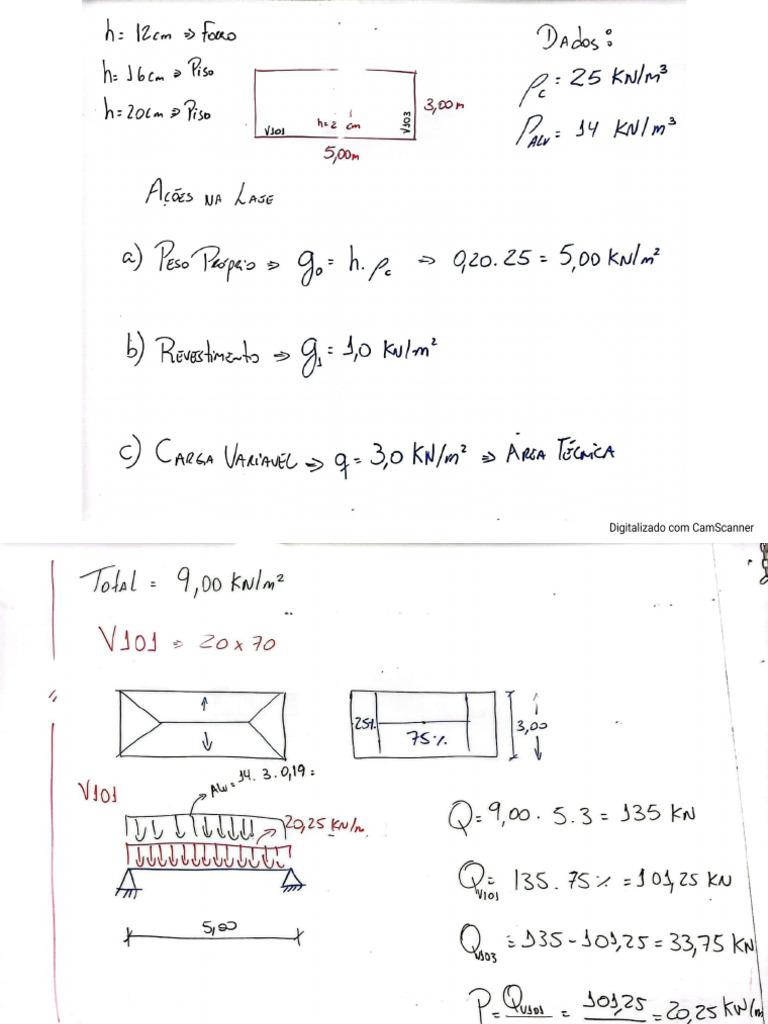 h= 12cm => FORRO
h= 16cm => PISO
h= 20cm => PISO
V101
h=2 cm
V103
3,00m
5,00m
DADOS:
ρc = 25 KN/m³
PALV = 14 KN/m³
AÇÕES NA LAJE
a) PESO PRÓPRIO => g0 = h . ρc => 0,20.25 = 5,00 KN/m²
b) REVESTIMENTO => g1 = 1,0 KN/m²
c) CARGA VARIAVEL => q = 3,0 KN/m² => ÁREA TÉCNICA
Digitalizado com CamScanner
TOTAL = 9,00 KN/m²
V101 = 20 x 70
25%
75%
3,00
V101
ALV = 14. 3. 0,19 =
20,25 KN/m
5,00
Q = 9,00 . 5.3 = 135 KN
QV101 = 135 . 75% = 101,25 KN
QV103 = 135 - 101,25 = 33,75 KN
P = QV101 = 101,25 = 20,25 KN/m